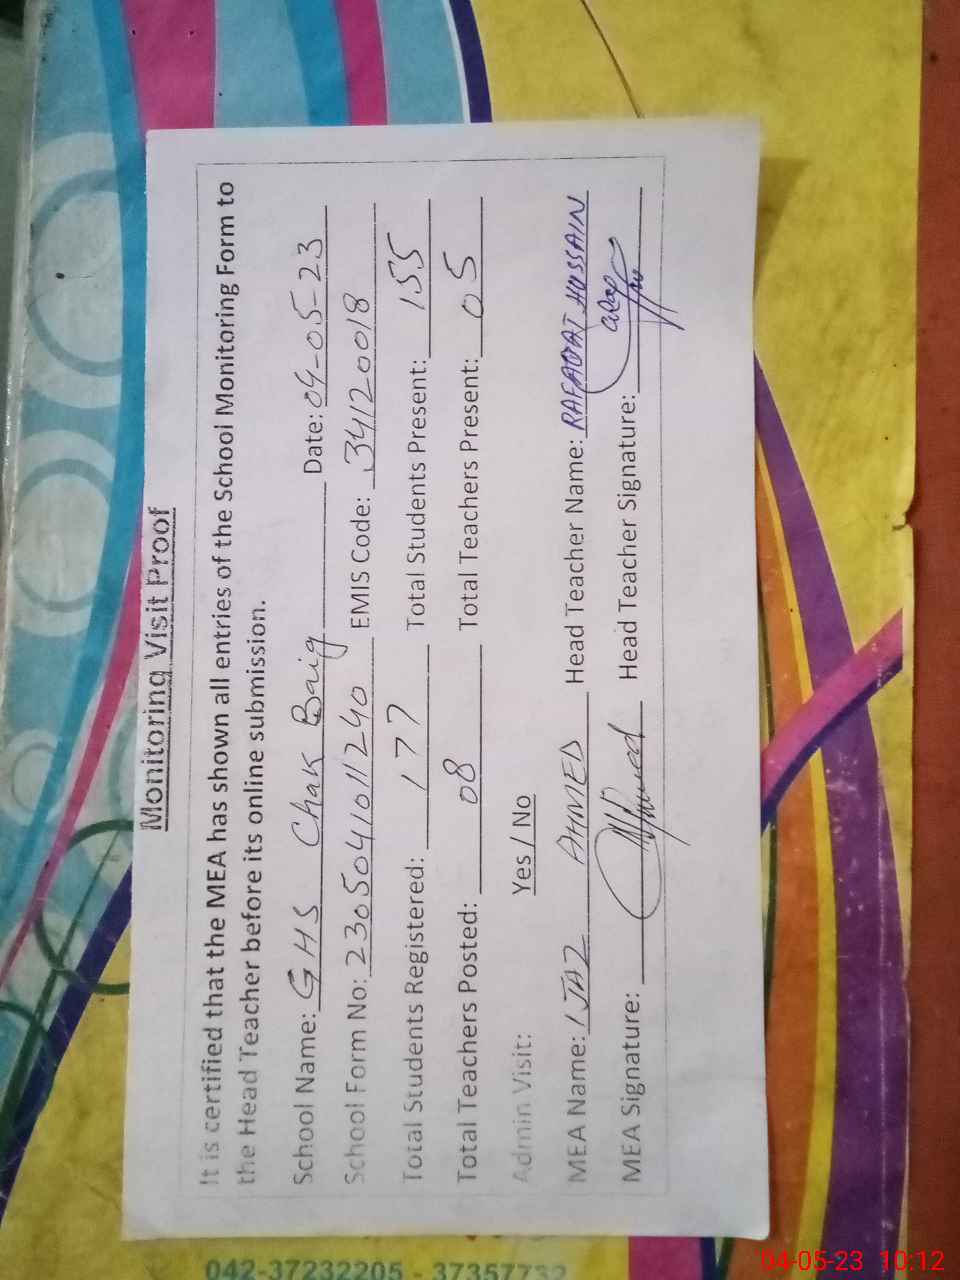 Monitoring Visit Proof
It is certified that the MEA has shown all entries of the School Monitoring Form to
the Head Teacher before its online submission.
School Name: GHS Chak Baig Date: 04-05-23
School Form No: 2305041011240 EMIS Code: 34120018
Total Students Registered: 177 Total Students Present: 155
Total Teachers Posted: 08 Total Teachers Present: 05
Admin Visit: Yes / No
MEA Name: IJAZ AHMED Head Teacher Name: RAFAQAT HUSSAIN
MEA Signature: Head Teacher Signature:
042-37232205 - 37357732
04-05-23 10:12